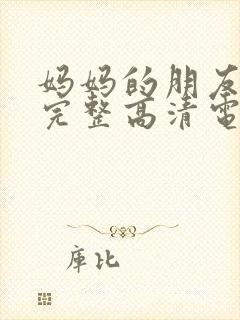 妈妈的朋友
完整高清电
库比